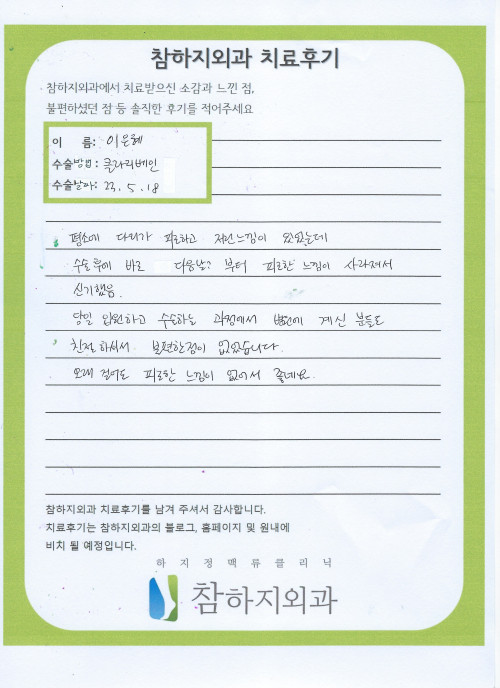 참하지외과 치료후기
참하지외과에서 치료받으신 소감과 느낀 점,
불편하셨던 점 등 솔직한 후기를 적어주세요
이 름: 이은혜
수술방법: 클라리베인
수술날짜: 23. 5. 18
평소에 다리가 피로하고 저린느낌이 있었는데
수술후에 바로 다음날? 부터 피로한 느낌이 사라져서
신기했음.
당일 입원하고 수술하는 과정에서 병원에 계신 분들도
친절하셔서 불편한점이 없었습니다.
오래 걸어도 피로한 느낌이 없어서 좋네요.
참하지외과 치료후기를 남겨 주셔서 감사합니다.
치료후기는 참하지외과의 블로그, 홈페이지 및 원내에
비치 될 예정입니다.
하지정맥류클리닉
참하지외과